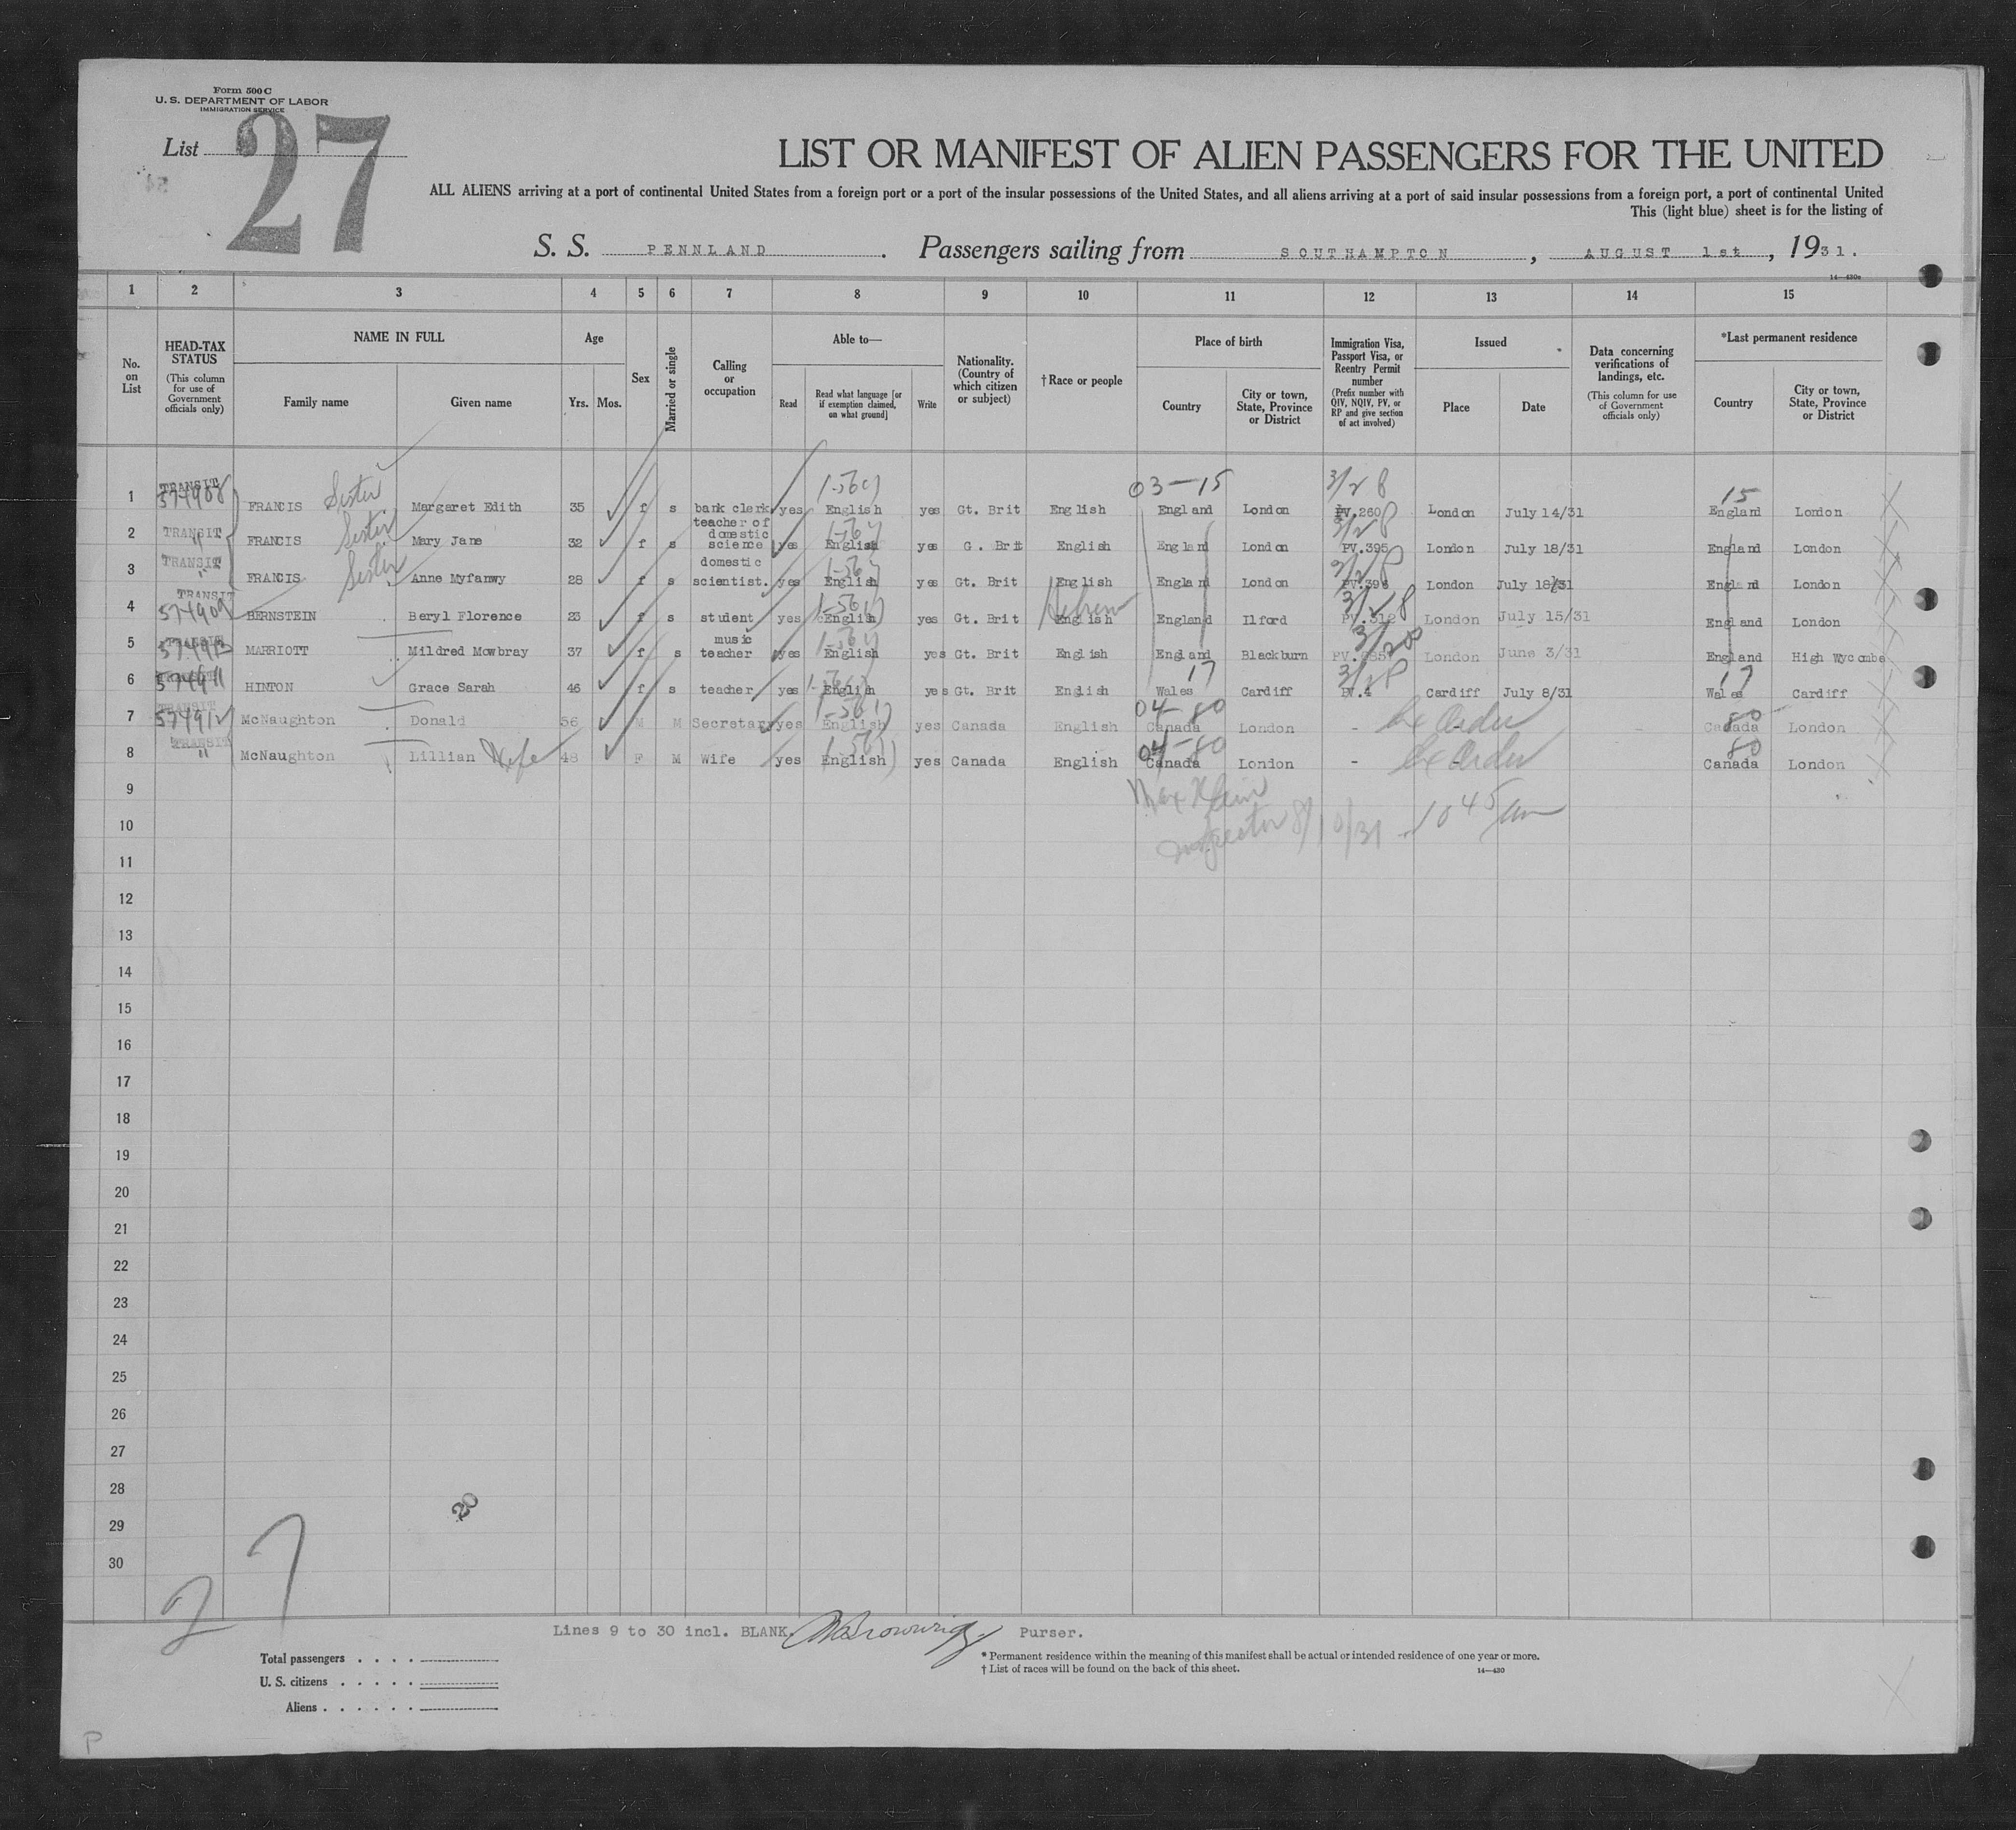 Form 500 C
U. S. DEPARTMENT OF LABOR
IMMIGRATION SERVICE
List 27
LIST OR MANIFEST OF ALIEN PASSENGERS FOR THE UNITED
ALL ALIENS arriving at a port of continental United States from a foreign port or a port of the insular possessions of the United States, and all aliens arriving at a port of said insular possessions from a foreign port, a port of continental United
This (light blue) sheet is for the listing of
S. S. PENNLAND. Passengers sailing from SOUTHAMPTON, AUGUST 1st, 1931.
14—430a
1 2 3 4 5 6 7 8 9 10 11 12 13 14 15
No. on List
HEAD-TAX STATUS (This column for use of Government officials only)
NAME IN FULL
Family name Given name
Age
Yrs. Mos.
Sex
Married or single
Calling or occupation
Able to—
Read Read what language [or if exemption claimed, on what ground] Write
Nationality. (Country of which citizen or subject)
†Race or people
Place of birth
Country City or town, State, Province or District
Immigration Visa, Passport Visa, or Reentry Permit number (Prefix number with QIV, NQIV, PV, or RP and give section of act involved)
Issued
Place Date
Data concerning verifications of landings, etc. (This column for use of Government officials only)
*Last permanent residence
Country City or town, State, Province or District
03-15 3/28 15
1 TRANSIT 574908 FRANCIS Sister Margaret Edith 35 f s bank clerk yes English yes Gt. Brit English England London PV.260 London July 14/31 England London
2 TRANSIT " FRANCIS Sister Mary Jane 32 f s teacher of domestic science yes English yes G. Brit English England London 3/28 PV.395 London July 18/31 England London
3 TRANSIT " FRANCIS Sister Anne Myfanwy 28 f s domestic scientist. yes English yes Gt. Brit English England London 3/28 London July 18/31 England London
4 TRANSIT 574909 BERNSTEIN Beryl Florence 23 f s student yes English yes Gt. Brit Hebrew English England Ilford 3/28 PV.312 London July 15/31 England London
5 TRANSIT MARRIOTT Mildred Mowbray 37 f s music teacher yes English yes Gt. Brit English England Blackburn London June 3/31 England High Wycombe
6 TRANSIT 574911 HINTON Grace Sarah 46 f s teacher yes English yes Gt. Brit English 17 Wales Cardiff 3/28 PV.4 Cardiff July 8/31 17 Wales Cardiff
7 TRANSIT 574912 McNaughton Donald 56 M M Secretary yes English yes Canada English 04-80 Canada London - 80 Canada London
8 TRANSIT " McNaughton Lillian Wife 48 F M Wife yes English yes Canada English 04-80 Canada London - 80 Canada London
9 Max Klein
10 Inspector 8/10/31 10 45 am
11
12
13
14
15
16
17
18
19
20
21
22
23
24
25
26
27
28
29 20
30
27
Lines 9 to 30 incl. BLANK. Purser.
Total passengers
U. S. citizens
Aliens
* Permanent residence within the meaning of this manifest shall be actual or intended residence of one year or more.
† List of races will be found on the back of this sheet.
14—430
P